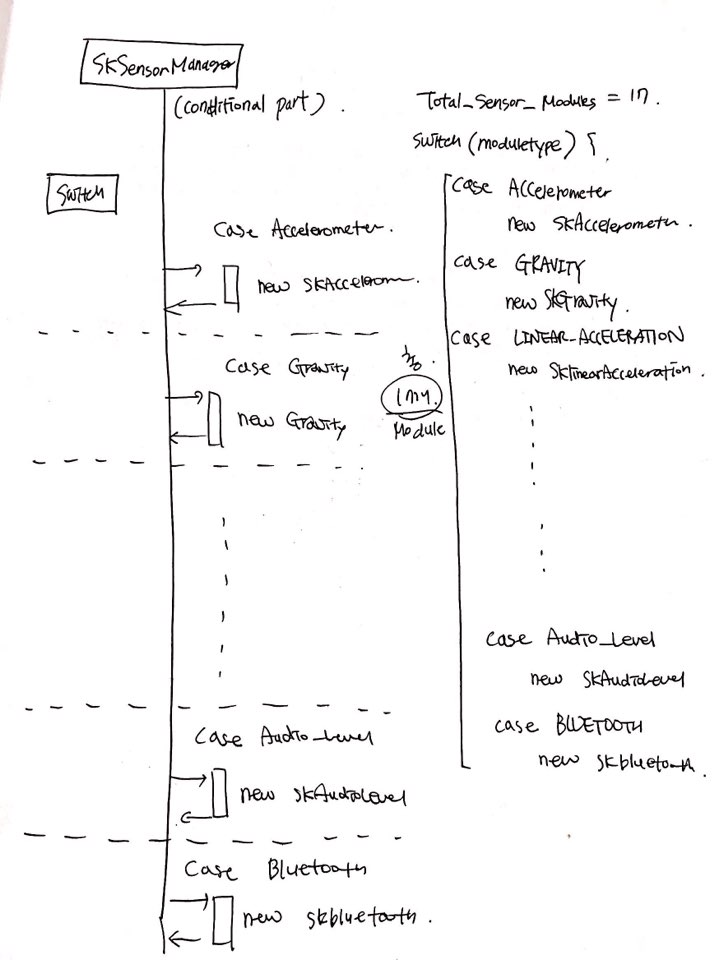 SKSensorManager
(conditional part).
Switch
Case Accelerometer.
new SKAccelerom
Case Gravity
new Gravity
Module
Case Audio_Level
new SKAudioLevel
Case Bluetooth
new skbluetooth.
Total_Sensor_Modules = 17.
Switch (moduletype) {
Case Accelerometer
new SKAccelerometer.
case GRAVITY
new SKGravity.
Case LINEAR-ACCELERATION
new SKlinearAcceleration.
case Audio_Level
new SKAudioLevel
case BLUETOOTH
new skbluetooth.